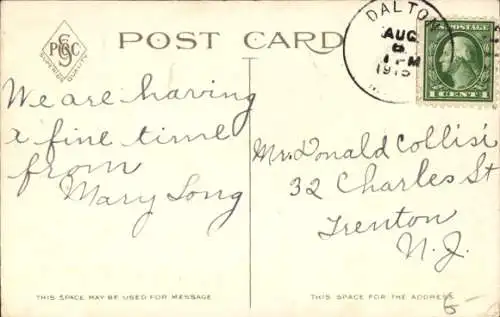 PCGC
SUPERIOR QUALITY
POST CARD
DALTON
AUG
6
1 PM
1915
U.S. POSTAGE
1 CENT 1
We are having
a fine time
from
Mary Long
Mr. Donald Collisi
32 Charles St
Trenton
N. J.
THIS SPACE MAY BE USED FOR MESSAGE
THIS SPACE FOR THE ADDRESS
6-